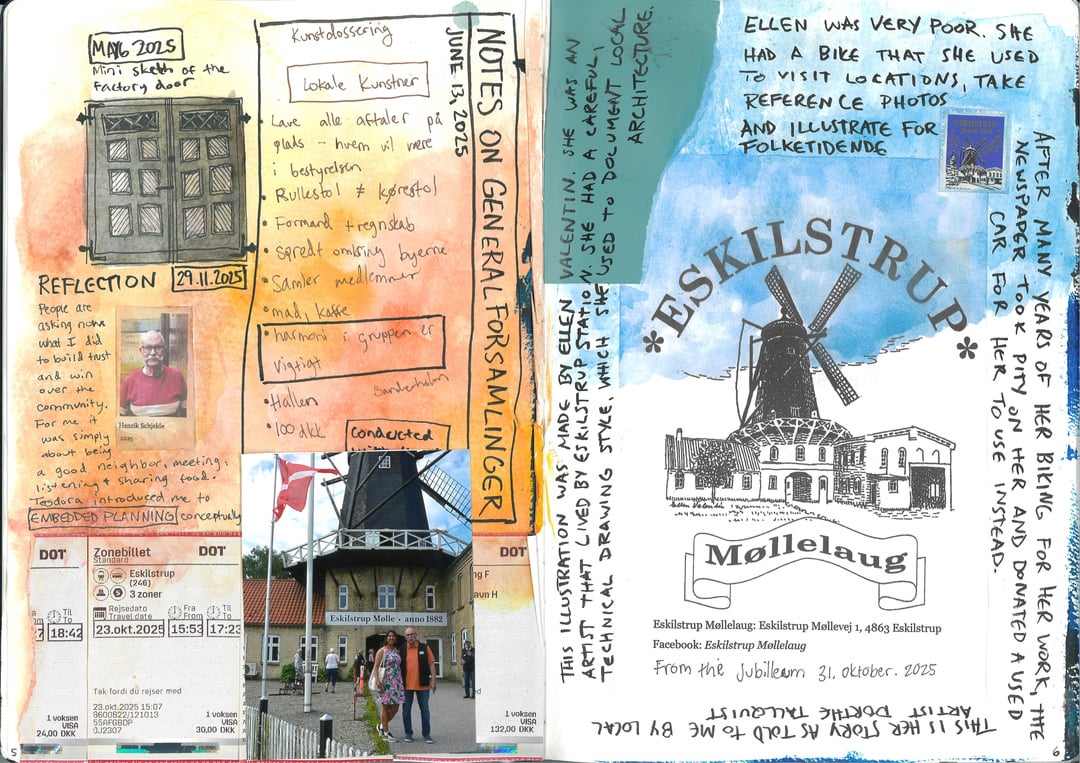 MAY 6 2025
Mini sketch of the
factory door
REFLECTION
29.11.2025
People are
asking now
what I did
to build trust
and win
over the
community.
For me it
was simply
about being
a good neighbor, meeting,
listening & sharing food.
Teodora introduced me to
EMBEDDED PLANNING conceptually
Henrik Schjelde
2025
Kunstdossering
Lokale Kunstner
• Lave alle aftaler på
plads – hvem vil være
i bestyrelsen
• Rullestol ≠ kørestol
• Formand + regnskab
• spredt omkring byerne
• Samler medlemmer
• mad, kaffe
• harmoni i gruppen er
vigtigt
• Hallen
Sanderholm
• 100 dkk
conducted
NOTES ON GENERALFORSAMLINGER
JUNE 13, 2025
DOT
Til
To
18:42
1 voksen
VISA
24,00 DKK
Zonebillet
DOT
Standard
Eskilstrup
(246)
3 zoner
Rejsedato
Travel date
Fra
From
Til
To
23.okt.2025
15:53
17:23
Tak fordi du rejser med
23.okt.2025 15:07
8600822/121013
55AFGBDP
0J2307
1 voksen
VISA
30,00 DKK
Eskilstrup Mølle • anno 1882
DOT
1 voksen
VISA
132,00 DKK
5
THIS ILLUSTRATION WAS MADE BY ELLEN VALENTIN. SHE WAS AN
ARTIST THAT LIVED BY ESKILSTRUP STATION. SHE HAD A CAREFUL,
TECHNICAL DRAWING STYLE, WHICH SHE USED TO DOCUMENT LOCAL
ARCHITECTURE.
ELLEN WAS VERY POOR. SHE
HAD A BIKE THAT SHE USED
TO VISIT LOCATIONS, TAKE
REFERENCE PHOTOS
AND ILLUSTRATE FOR
FOLKETIDENDE
ESKILSTRUP
AFTER MANY YEARS OF HER BIKING FOR HER WORK, THE
NEWSPAPER TOOK PITY ON HER AND DONATED A USED
CAR FOR HER TO USE INSTEAD.
THIS IS HER STORY AS TOLD TO ME BY LOCAL
ARTIST DORTHE TALLQUIST
*ESKILSTRUP*
Ellen Valentin
Møllelaug
Eskilstrup Møllelaug: Eskilstrup Møllevej 1, 4863 Eskilstrup
Facebook: Eskilstrup Møllelaug
From the Jubilleum 31. oktober. 2025
6